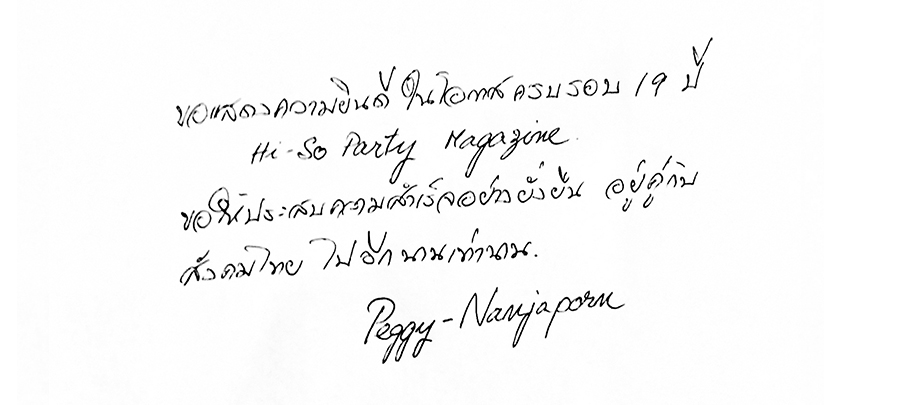 ขอแสดงความยินดี ในโอกาสครบรอบ 19 ปี
Hi-So Party Magazine
ขอให้ประสบความสำเร็จอย่างยั่งยืน อยู่คู่กับ
สังคมไทย ไปอีกนานเท่านาน.
Peggy-Nanjaporn